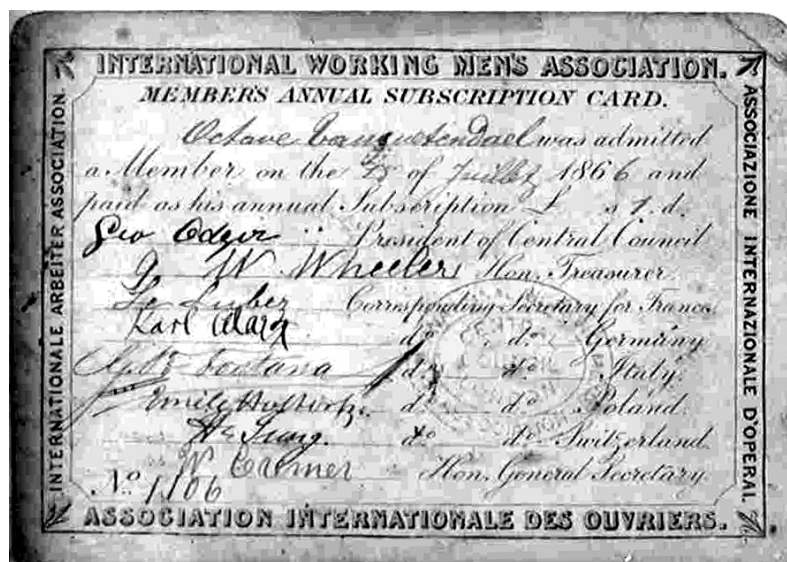 INTERNATIONAL WORKING MEN'S ASSOCIATION.
MEMBER'S ANNUAL SUBSCRIPTION CARD.
Octave was admitted
a Member on the of Juillet 1866 and
paid as his annual Subscription £ s 1. d.
Geo Odger President of Central Council
G. W. Wheeler Hon. Treasurer.
Le Lubez Corresponding Secretary for France
Karl Marx do. do. Germany
Fontana do. do. Italy.
Emile Holtorp. do. do. Poland.
H. Jung. do. do. Switzerland
W Cremer Hon. General Secretary
No. 1106
ASSOCIATION INTERNATIONALE DES OUVRIERS.
INTERNATIONALE ARBEITER ASSOCIATION.
ASSOCIAZIONE INTERNAZIONALE D'OPERAI.